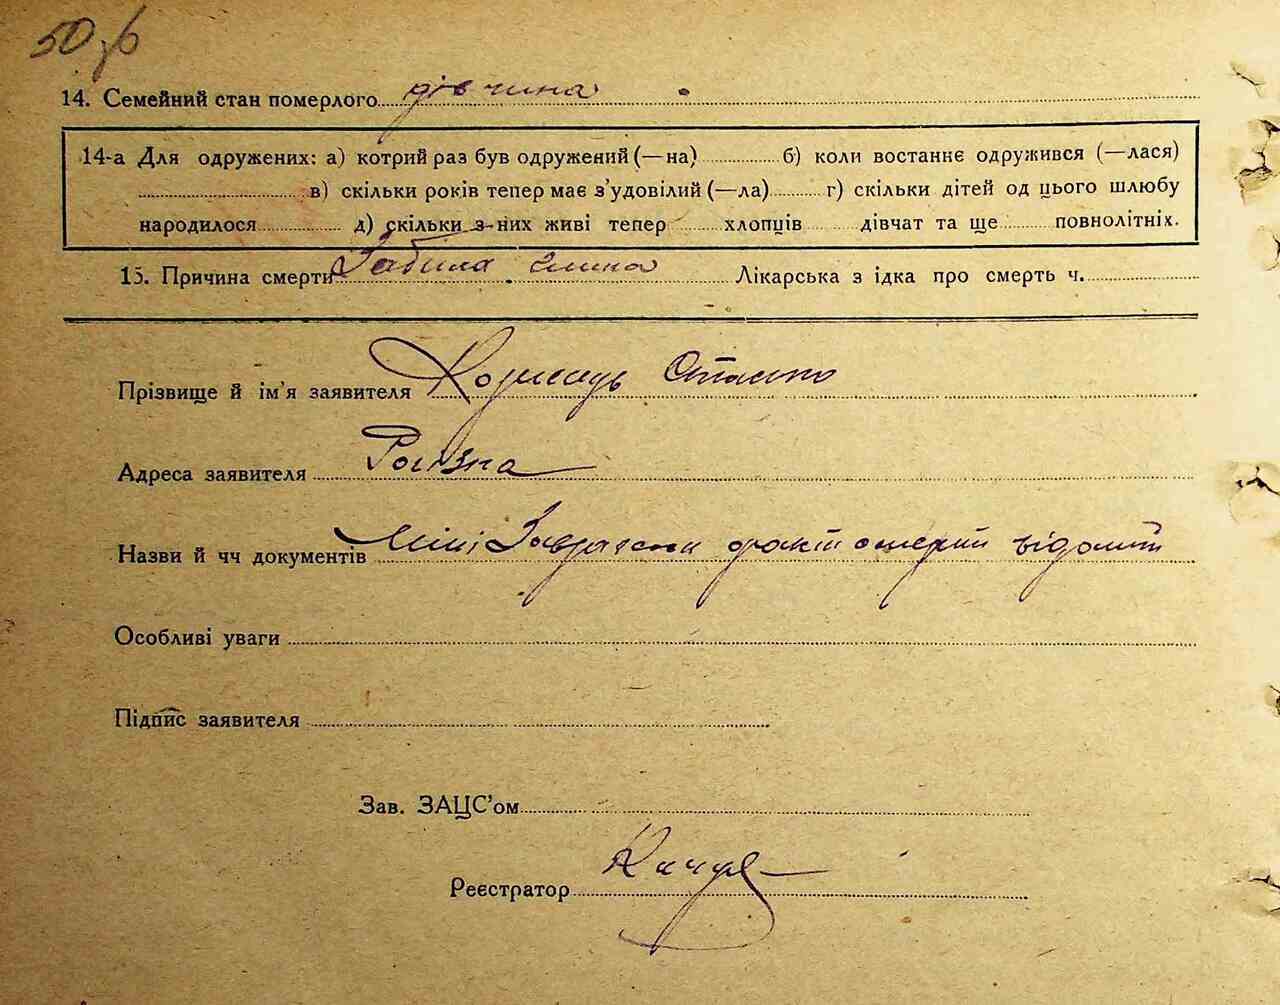 50,б
14. Семейний стан померлого дівчина
14-а Для одружених: а) котрий раз був одружений (—на) б) коли востаннє одружився (—лася)
в) скільки років тепер має з’удовілий (—ла) г) скільки дітей од цього шлюбу
народилося д) скільки з них живі тепер хлопців дівчат та ще повнолітніх.
15. Причина смерти Забила глина Лікарська з ідка про смерть ч.
Прізвище й ім’я заявителя
Адреса заявителя
Назви й чч документів відомий
Особливі уваги
Підпис заявителя
Зав. ЗАЦС’ом
Реєстратор